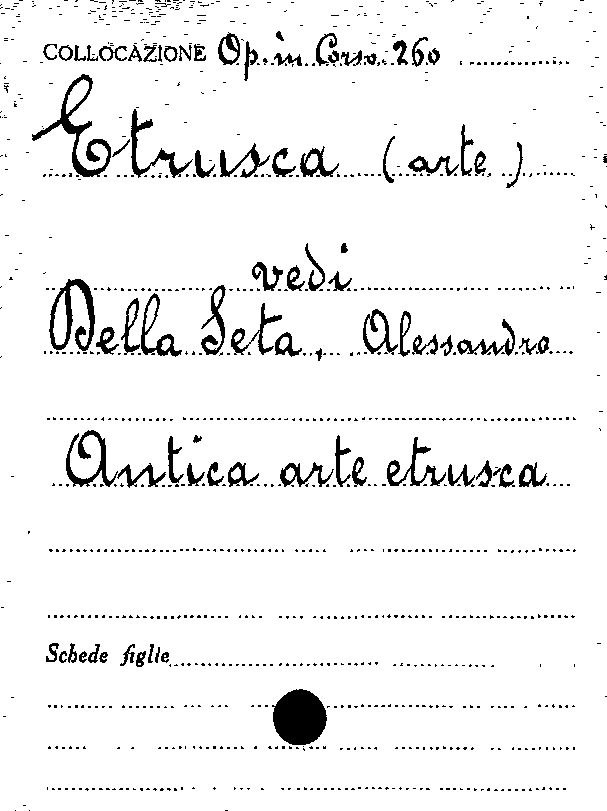 COLLOCAZIONE Op. in Corso. 260
Etrusca (arte)
vedi
Della Seta, Alessandro
Antica arte etrusca
Schede figlie